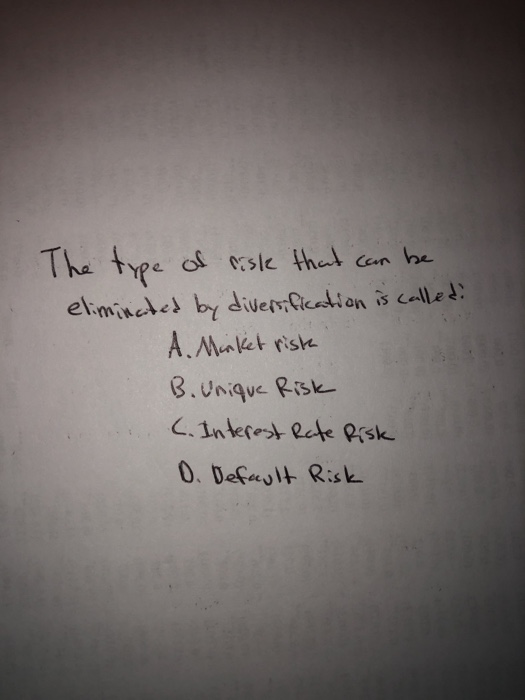 The type of risk that can be
eliminated by diversification is called:
A. Market risk
B. Unique Risk
C. Interest Rate Risk
D. Default Risk